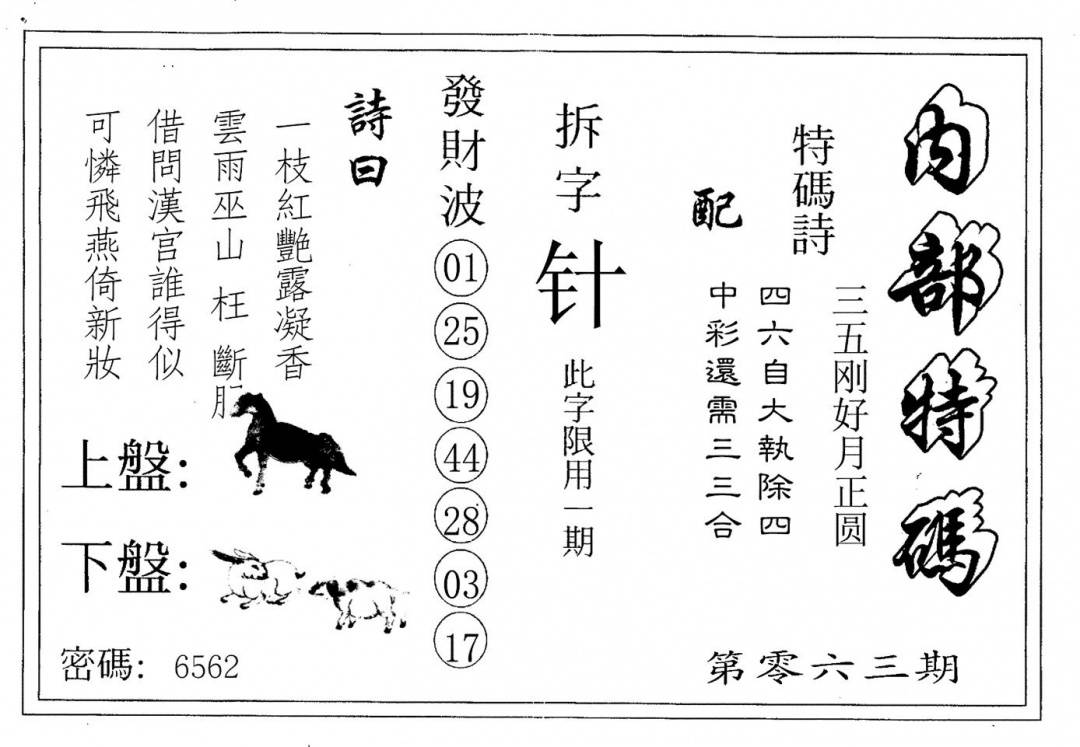 內部特碼
特碼詩
三五刚好月正圆
配
四六自大執除四
中彩還需三三合
第零六三期
拆字
针
此字限用一期
發財波
01
25
19
44
28
03
17
詩曰
一枝紅艷露凝香
雲雨巫山枉斷
借問漢宮誰得似
可憐飛燕倚新妝
上盤：
下盤：
密碼： 6562